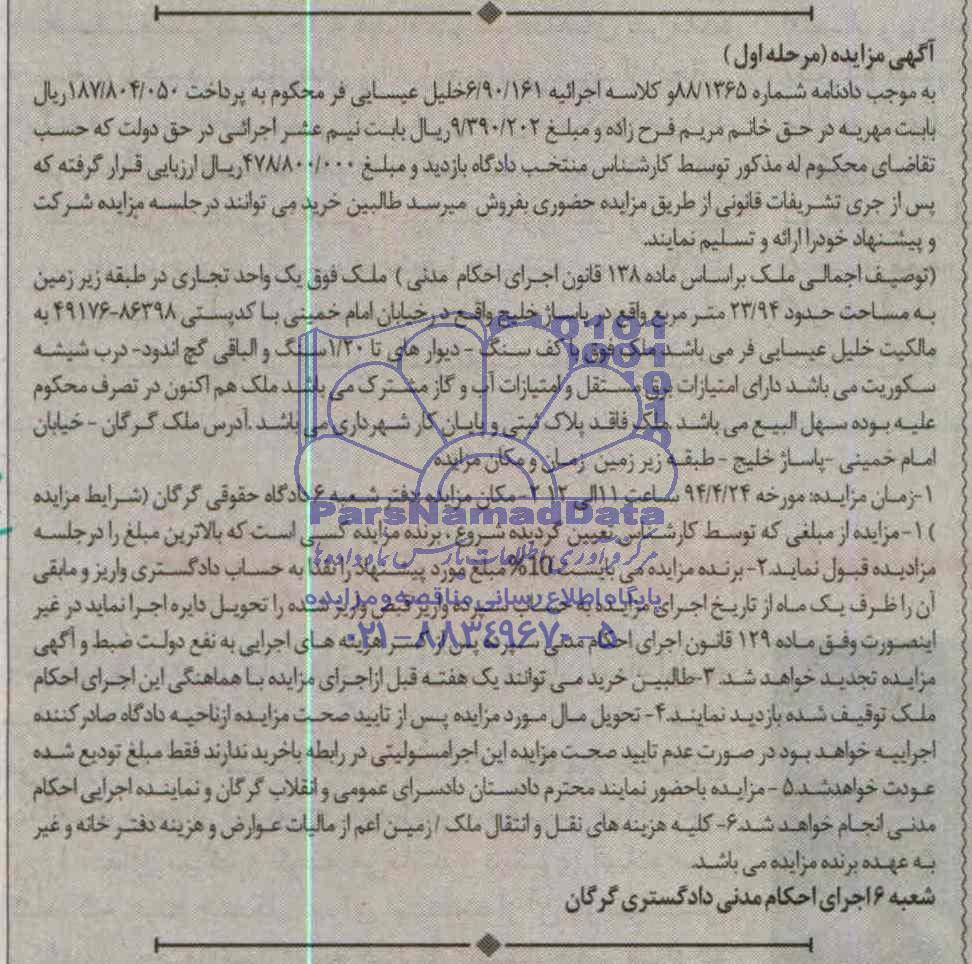 آگهی مزایده (مرحله اول )
به موجب دادنامه شماره ۸۸/۱۳۶۵و کلاسه اجرائیه ۶/۹۰/۱۶۱خلیل عیسایی فر محکوم به پرداخت ۱۸۷/۸۰۴/۰۵۰ریال
بابت مهریه در حق خانم مریم فرح زاده و مبلغ ۹/۳۹۰/۲۰۲ریال بابت نیم عشر اجرائی در حق دولت که حسب
تقاضای محکوم له مذکور توسط کارشناس منتخب دادگاه بازدید و مبلغ ۴۷۸/۸۰۰/۰۰۰ریال ارزیابی قرار گرفته که
پس از جری تشریفات قانونی از طریق مزایده حضوری بفروش میرسد طالبین خرید می توانند درجلسه مزایده شرکت
و پیشنهاد خودرا ارائه و تسلیم نمایند.
(توصیف اجمالی ملک براساس ماده ۱۳۸ قانون اجرای احکام مدنی ) ملک فوق یک واحد تجاری در طبقه زیر زمین
به مساحت حدود ۲۳/۹۴ متر مربع واقع در پاساژ خلیج واقع در خیابان امام خمینی با کدپستی ۸۶۳۹۸-۴۹۱۷۶ به
مالکیت خلیل عیسایی فر می باشد ملک فوق با کف سنگ - دیوار های تا ۱/۲۰سنگ و الباقی گچ اندود- درب شیشه
سکوریت می باشد دارای امتیازات برق مستقل و امتیازات آب و گاز مشترک می باشد ملک هم اکنون در تصرف محکوم
علیه بوده سهل البیع می باشد .ملک فاقد پلاک ثبتی و پایان کار شهرداری می باشد .آدرس ملک گرگان - خیابان
امام خمینی -پاساژ خلیج - طبقه زیر زمین زمان و مکان مزایده
۱-زمان مزایده: مورخه ۹۴/۴/۲۴ ساعت ۱۱الی ۱۲ ۲- مکان مزایده :دفتر شعبه ۶ دادگاه حقوقی گرگان (شرایط مزایده
) ۱- مزایده از مبلغی که توسط کارشناس تعیین گردیده شروع ، برنده مزایده کسی است که بالاترین مبلغ را درجلسه
مزادیده قبول نماید.۲- برنده مزایده می بایست 10% مبلغ مورد پیشنهاد را نقدا به حساب دادگستری واریز و مابقی
آن را ظرف یک ماه از تاریخ اجرای مزایده به حساب سپرده واریز قبض واریز شده را تحویل دایره اجرا نماید در غیر
اینصورت وفق ماده ۱۲۹ قانون اجرای احکام مدنی سپرده پس از کسر هزینه های اجرایی به نفع دولت ضبط و آگهی
مزایده تجدید خواهد شد. ۳-طالبین خرید می توانند یک هفته قبل ازاجرای مزایده با هماهنگی این اجرای احکام
ملک توقیف شده بازدید نمایند.۴- تحویل مال مورد مزایده پس از تایید صحت مزایده ازناحیه دادگاه صادر کننده
اجراییه خواهد بود در صورت عدم تایید صحت مزایده این اجرامسولیتی در رابطه باخرید ندارند فقط مبلغ تودیع شده
عودت خواهدشد.۵ - مزایده باحضور نمایند محترم دادستان دادسرای عمومی و انقلاب گرگان و نماینده اجرایی احکام
مدنی انجام خواهد شد.۶- کلیه هزینه های نقل و انتقال ملک / زمین اعم از مالیات عوارض و هزینه دفتر خانه و غیر
به عهده برنده مزایده می باشد.
شعبه ۶ اجرای احکام مدنی دادگستری گرگان
ParsNamadData
مرکز فرآوری اطلاعات پارس نماد داده ها
پایگاه اطلاع رسانی مناقصه و مزایده
۰۲۱-۸۸۳۴۹۶۷۰-۵